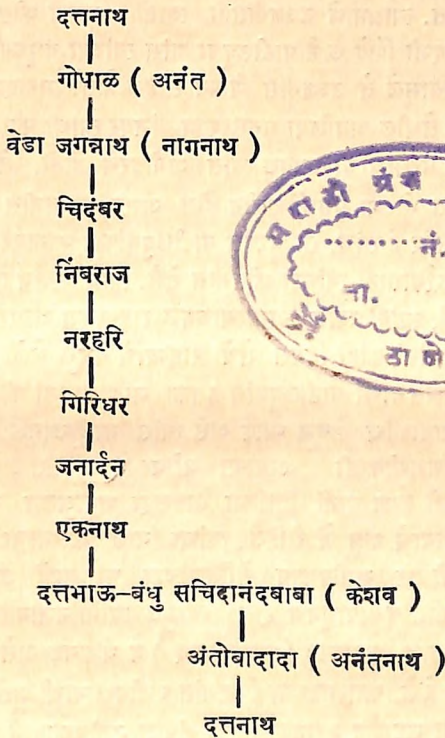 दत्तनाथ
गोपाळ ( अनंत )
वेडा जगन्नाथ ( नागनाथ )
चिदंबर
निंबराज
नरहरि
गिरिधर
जनार्दन
एकनाथ
दत्तभाऊ–बंधु सच्चिदानंदबाबा ( केशव )
अंतोबादादा ( अनंतनाथ )
दत्तनाथ
मराठी ग्रंथ
नं.
ना.